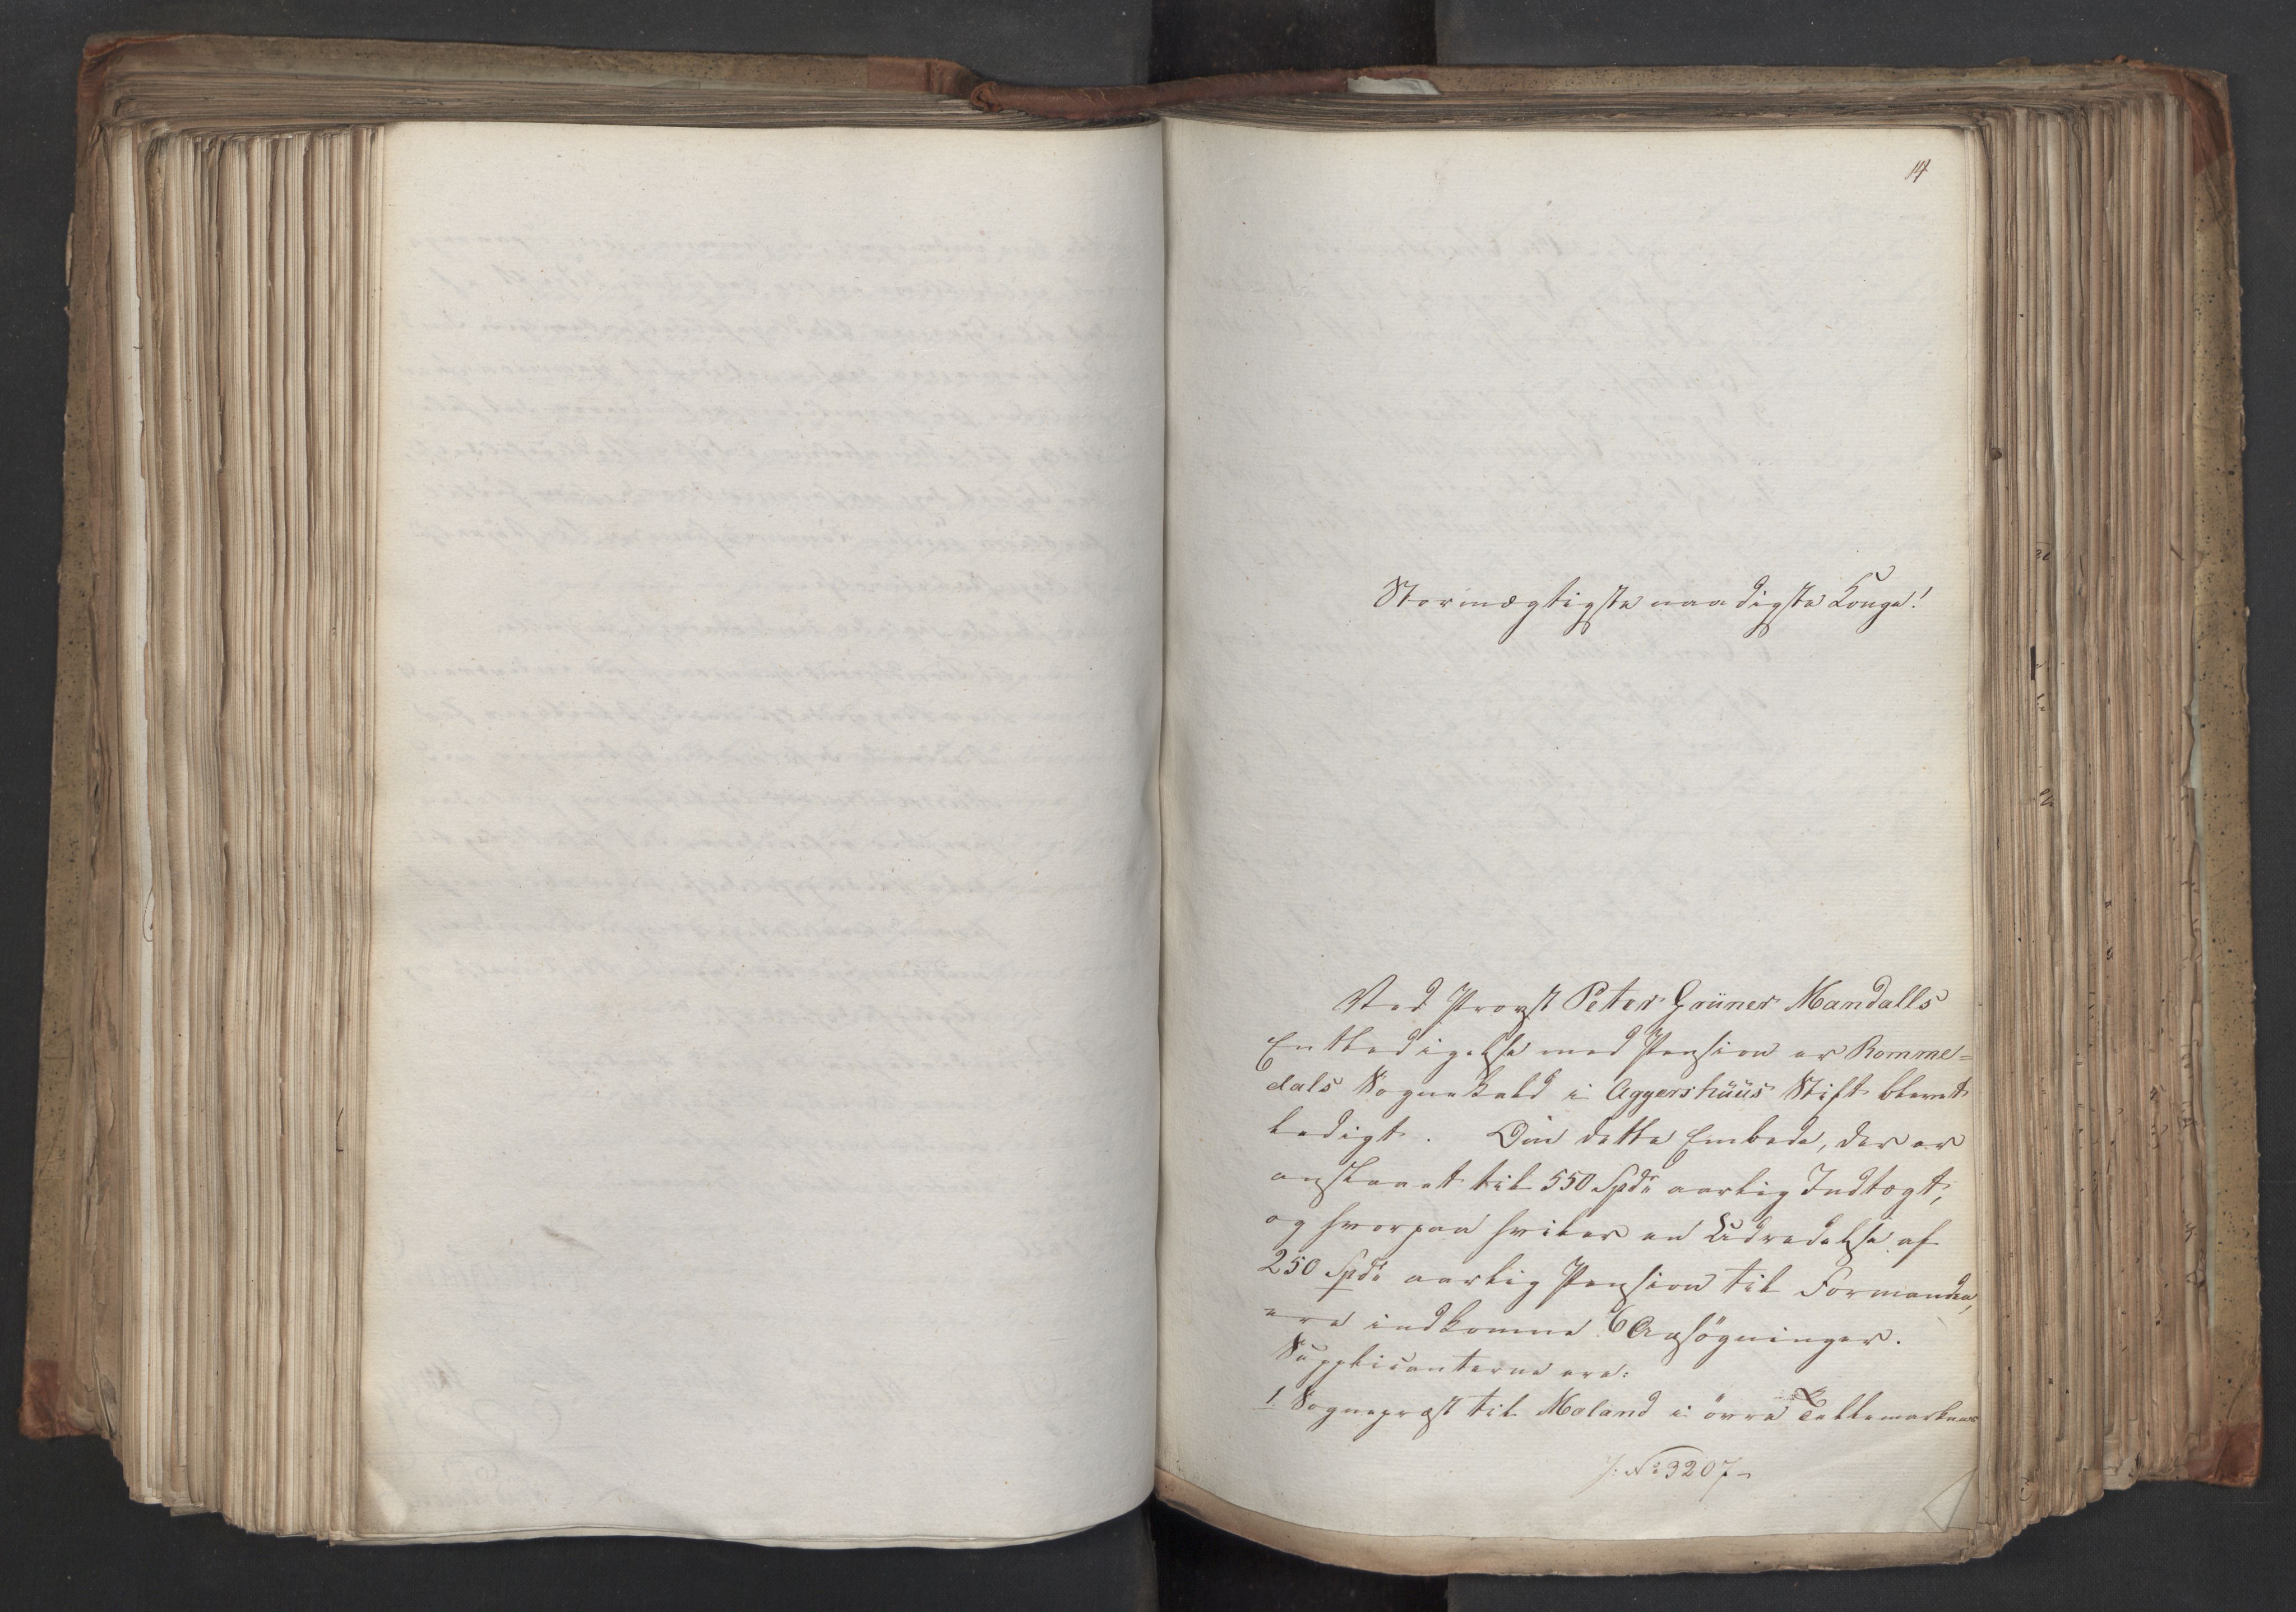 14
Stormægtigste naadigste Konge!
Ved Provst Peter Grüner Mandalls
Entledigelse med Pension er Romme-
dals Sognekald i Aggershuus Stift blevet
ledigt. Om dette Embede, der er
anslaaet til 550 Spd aarlig Indtægt,
og hvorpaa hviler en Udredelse af
250 Spd aarlig Pension til Formanden,
ere indkomne 6 Ansøgninger.
Supplicanterne ere:
1 Sognepræst til Moland i övre Tellemarken
J: No 3207